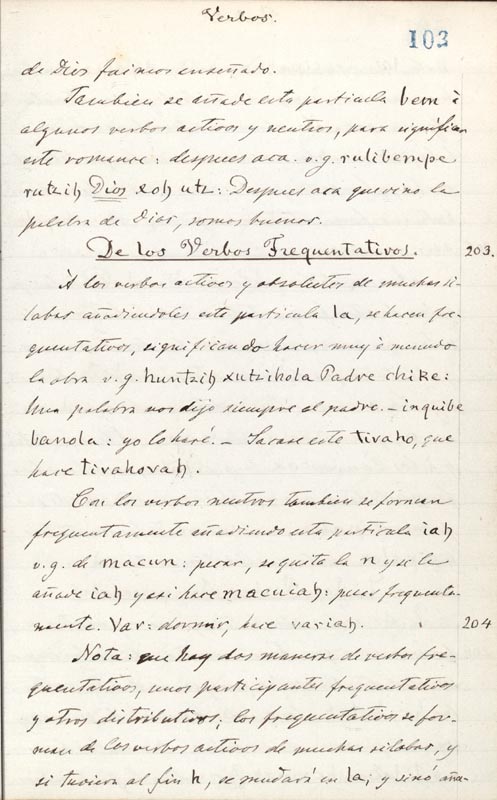 Verbos.
103
de Dios fuimos enseñado.
Tambien se añade esta particula bem à
algunos verbos activos y neutros, para significar
este romance: despues aca. v.g. rulibempe
rutzih Dios xoh utz: Despues aca que vino la
palabra de Dios, somos buenos.
De los Verbos Frequentativos. 203.
À los verbos activos y absolutos de muchas si-
labas añadiendoles esta particula la, se hacen fre-
quentativos, significando hacer muy à menudo
la obra v.g. huntzih xutzihola Padre chike:
Una palabra nos dijo siempre el padre. - inquibe
banola: yo lo haré. - Sacase este tivaho, que
hace tivahovah.
Con los verbos neutros tambien se forman
frequentamente añadiendo esta particula iah
v.g. de macun: pecar, se quita la n y se le
añade iah y asi hace macuiah: peca frequenta-
mente. Var: dormir, hace variah. 204
Nota: que hay dos maneras de verbos fre-
quentativos, unos participantes frequentativos
y otros distributivos; los frequentativos se for-
man de los verbos activos de muchas silabas, y
si tuviera al fin h, se mudará en la; y sinó aña-